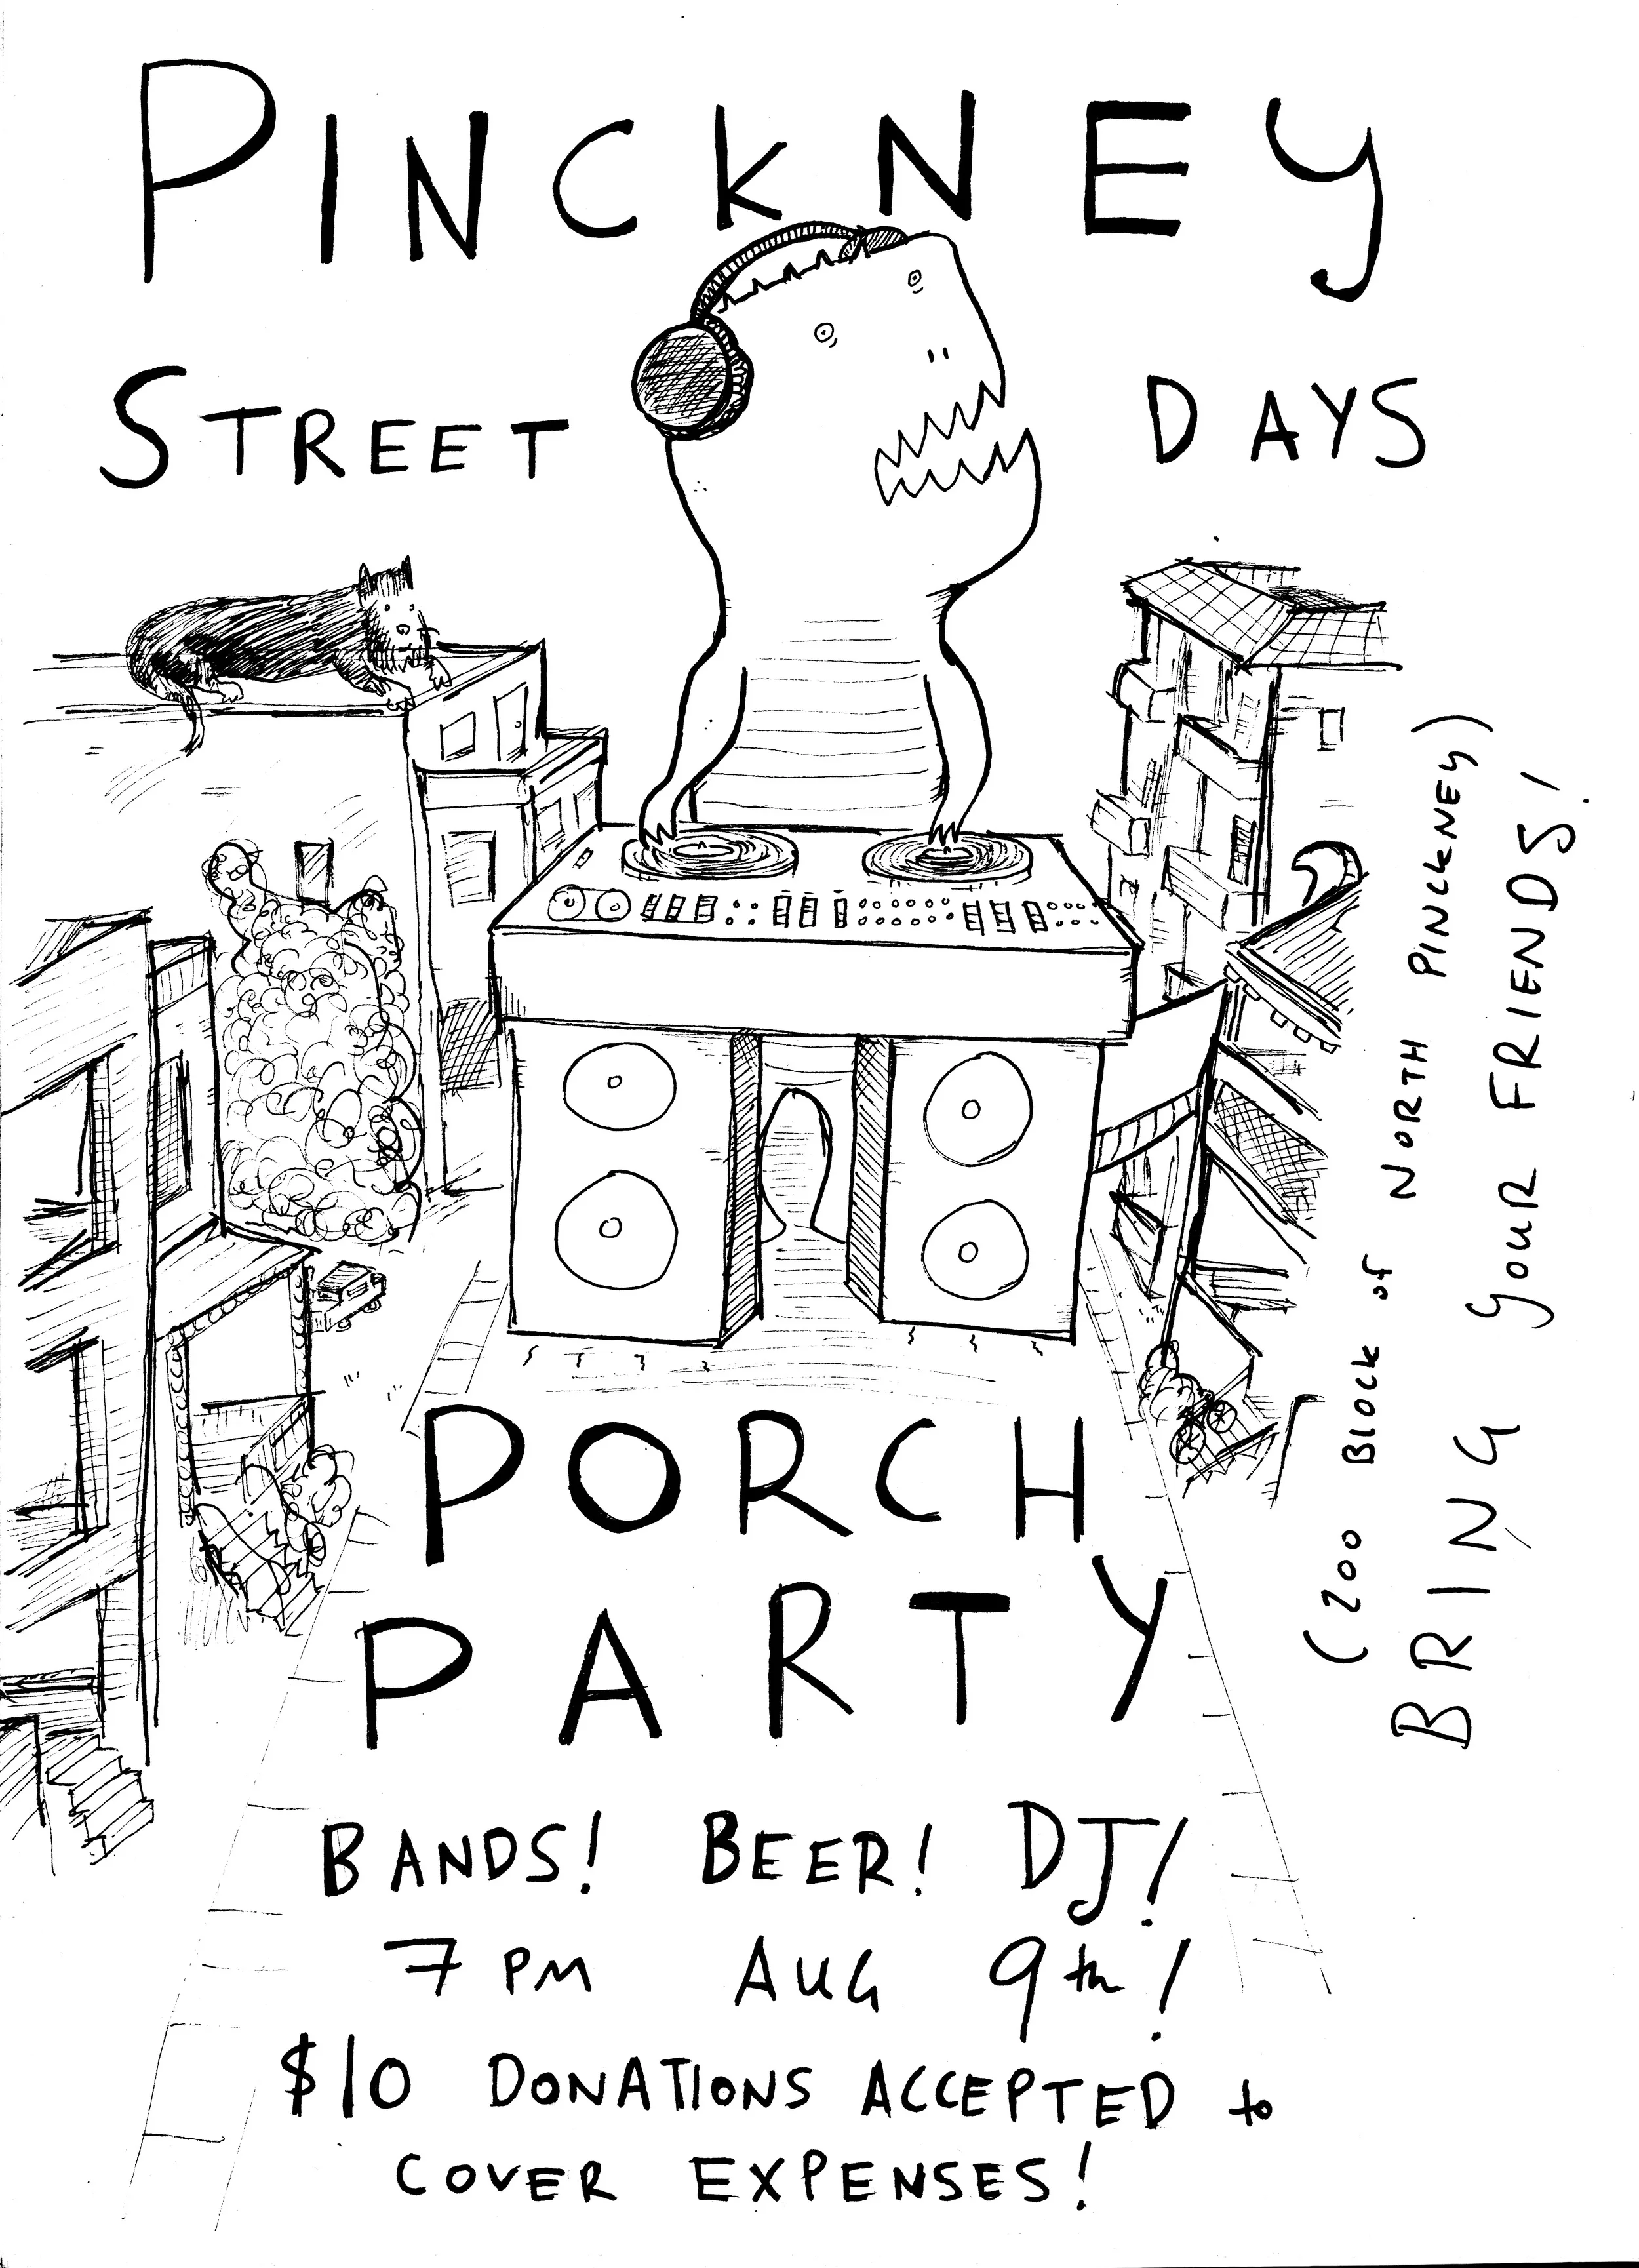 PINCKNEY
STREET DAYS
PORCH
PARTY
BANDS! BEER! DJ!
7 PM AUG 9th!
$10 DONATIONS ACCEPTED to
COVER EXPENSES!
(200 BLOCK of NORTH PINCKNEY)
BRING YOUR FRIENDS!